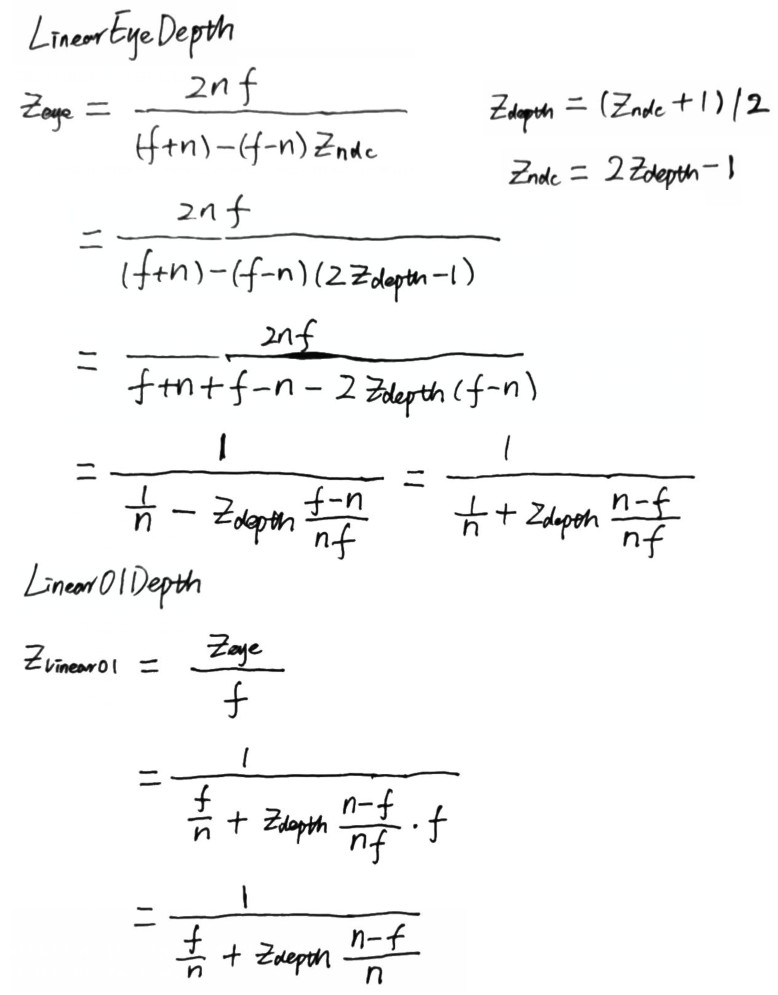 LinearEyeDepth
Z_eye = \frac{2nf}{(f+n)-(f-n)Z_ndc}
Z_depth = (Z_ndc+1)/2
Z_ndc = 2Z_depth-1
= \frac{2nf}{(f+n)-(f-n)(2Z_depth-1)}
= \frac{2nf}{f+n+f-n-2Z_depth(f-n)}
= \frac{1}{\frac{1}{n} - Z_depth\frac{f-n}{nf}} = \frac{1}{\frac{1}{n} + Z_depth\frac{n-f}{nf}}
Linear01Depth
Z_Linear01 = \frac{Z_eye}{f}
= \frac{1}{\frac{f}{n} + Z_depth\frac{n-f}{nf} \cdot f}
= \frac{1}{\frac{f}{n} + Z_depth\frac{n-f}{n}}